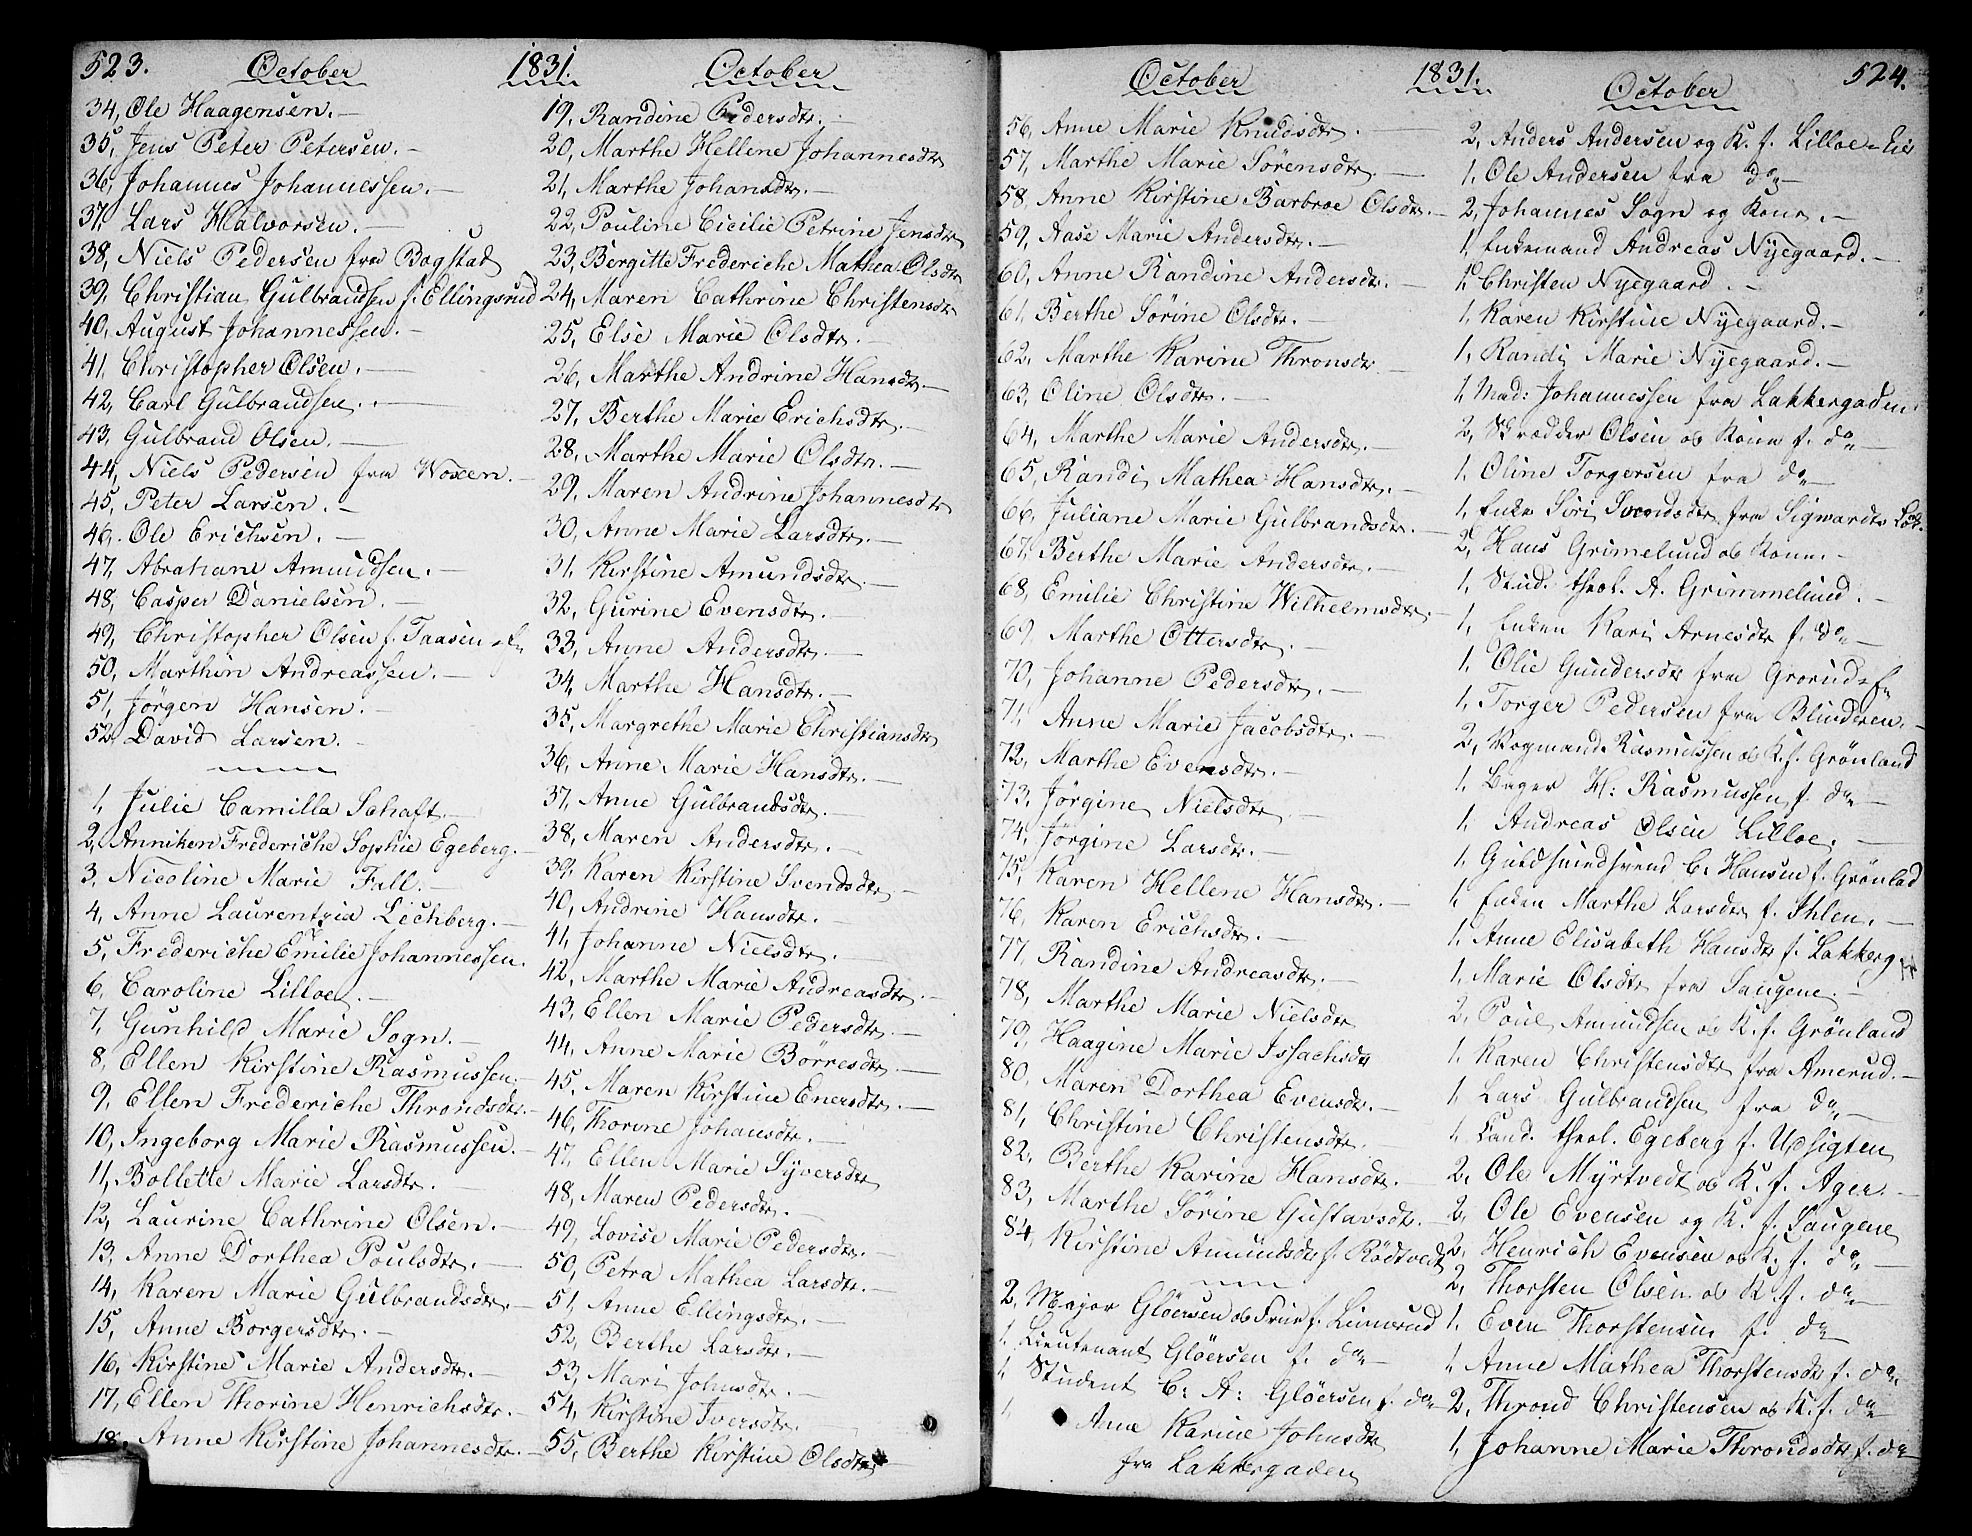 523. October 1831. October
34, Ole Haagensen. —
35, Jens Peter Petersen. —
36, Johannes Johannessen. —
37, Lars Halvorsen. —
38, Niels Pedersen fra Bogstad
39, Christian Gulbrandsen f. Ellingsrud
40, August Johannessen. —
41, Christopher Olsen. —
42, Carl Gulbrandsen. —
43, Gulbrand Olsen. —
44, Niels Pedersen fra Woxen. —
45, Peter Larsen. —
46, Ole Erichsen. —
47, Abraham Amundsen. —
48, Casper Danielsen. —
49, Christopher Olsen f. Taasen
50, Marthin Andreassen. —
51, Jörgen Hansen. —
52, David Larsen. —
1, Julie Camilla Schaft. —
2, Anniken Frederiche Sophie Egeberg. —
3, Nicoline Marie Fall. —
4, Anne Laurentzia Lechberg. —
5, Frederiche Emilie Johannessen.
6, Caroline Lilloe. —
7, Gunhild Marie Sogn. —
8, Ellen Kirstine Rasmussen. —
9, Ellen Frederiche Throndsdtr. —
10, Ingeborg Marie Rasmussen. —
11, Bollette Marie Larsdtr. —
12, Laurine Cathrine Olsen. —
13, Anne Dorthea Poulsdtr. —
14, Karen Marie Gulbrandsdtr. —
15, Anne Borgersdtr. —
16, Kirstine Marie Andersdtr. —
17, Ellen Thorine Henrichsdtr. —
18, Anne Kirstine Johannesdtr. —
19, Randine Pedersdtr. —
20, Marthe Hellene Johannesdtr
21, Marthe Johansdtr. —
22, Pouline Cicilie Petrine Jensdtr
23, Bergitte Frederiche Mathea Olsdtr
24, Maren Cathrine Christensdtr
25, Else Marie Olsdtr. —
26, Marthe Andrine Hansdtr. —
27, Berthe Marie Erichsdtr. —
28, Marthe Marie Olsdtr. —
29, Maren Andrine Johannesdtr
30, Anne Marie Larsdtr. —
31, Kirstine Amundsdtr. —
32, Gurine Evensdtr. —
33, Anne Andersdtr. —
34, Marthe Hansdtr. —
35, Margrethe Marie Christiansdtr
36, Anne Marie Hansdtr. —
37, Anne Gulbrandsdtr. —
38, Maren Andersdtr. —
39, Karen Kirstine Svendsdtr. —
40, Andrine Hansdtr. —
41, Johanne Nielsdtr. —
42, Marthe Marie Andreasdtr. —
43, Ellen Marie Pedersdtr. —
44, Anne Marie Börresdtr. —
45, Maren Kirstine Enersdtr. —
46, Thorine Johansdtr. —
47, Ellen Marie Syversdtr
48, Maren Pedersdtr. —
49, Lovise Marie Pedersdtr. —
50, Petra Mathea Larsdtr. —
51, Anne Ellingsdtr. —
52, Berthe Larsdtr. —
53, Mari Johnsdtr. —
54, Kirstine Iversdtr. —
55, Berthe Kirstine Olsdtr. —
October 1831. October 524.
56, Anne Marie Knudsdtr. —
57, Marthe Marie Sörensdtr. —
58, Anne Kirstine Barbroe Olsdtr. —
59, Aase Marie Andersdtr. —
60, Anne Randine Andersdtr. —
61, Berthe Sörine Olsdtr. —
62, Marthe Karine Thronsdtr —
63, Oline Olsdtr. —
64, Marthe Marie Andersdtr. —
65, Randi Mathea Hansdtr. —
66, Juliane Marie Gulbrandsdtr. —
67, Berthe Marie Andersdtr. —
68, Emilie Christine Wilhelmsdtr. —
69, Marthe Ottersdtr. —
70, Johanne Pedersdtr. —
71, Anne Marie Jacobsdtr. —
72, Marthe Evensdtr. —
73, Jörgine Nielsdtr. —
74, Jörgine Larsdtr. —
75, Karen Hellene Hansdtr. —
76, Karen Erichsdtr. —
77, Randine Andreasdtr. —
78, Marthe Marie Nielsdtr
79, Haagine Marie Issachsdtr
80, Maren Dorthea Evensdtr. —
81, Christine Christensdtr. —
82, Berthe Karine Hansdtr. —
83, Marthe Sörine Gustavsdtr. —
84, Kirstine Amundsdtr f. Rödtvedt
2, Major Glöersen ob Frue f. Linnerud
1, Lieutenant Glöersen f. do —
1, Student C: A: Glöersen f. do
1, Anne Karine Johnsdtr
fra Lakkergaden
2, Anders Andersen og K. f. Lilloe
1, Ole Andersen fra do —
2, Johannes Sogn og Kone. —
1, Enkemand Andreas Nyegaard. —
1, Christen Nyegaard. —
1, Karen Kirstine Nyegaard. —
1, Randi Marie Nyegaard. —
1, Mad: Johannessen fra Lakkergaden
2, Skrædder Olsen ob Kone f. do —
1, Oline Torgersen fra do —
1, Enke Siri Svendsdtr fra Sigwardts
2, Hans Grimelund ob Kone. —
1, Stud. theol. A. Grimmelund. —
1, Enken Kari Arnesdtr f. do —
1, Olie Gundersdtr fra Grorud
1, Torger Pedersen fra Blinderen. —
2, Rasmussen ob K. f. Grönland
1, Bager H: Rasmussen f. do —
1, Andreas Olsen Lilloe. —
1, Guldsmedsvend C. Hansen f. Grönlad
1, Enken Marthe Larsdtr f. Ihlen. —
1, Anne Elisabeth Hansdtr f. Lakkerg
1, Marie Olsdtr fra Saugene. —
2, Poul Amundsen ob K. f. Grönland
1, Karen Christensdtr fra Amerud. —
1, Lars Gulbrandsen fra do —
1, Cand. theol. Egeberg f. Udsigten
2, Ole Myrtvedt ob K. f. Ager. —
2, Ole Evensen og K. f. Saugene
2, Henrich Evensen ob K. f. do —
2, Thorsten Olsen ob K f. do —
1, Even Thorstensen f. do
1, Anne Mathea Thorstensdtr f. do
2, Thrond Christensen ob K. f. do
1, Johanne Marie Throndsdtr f. do